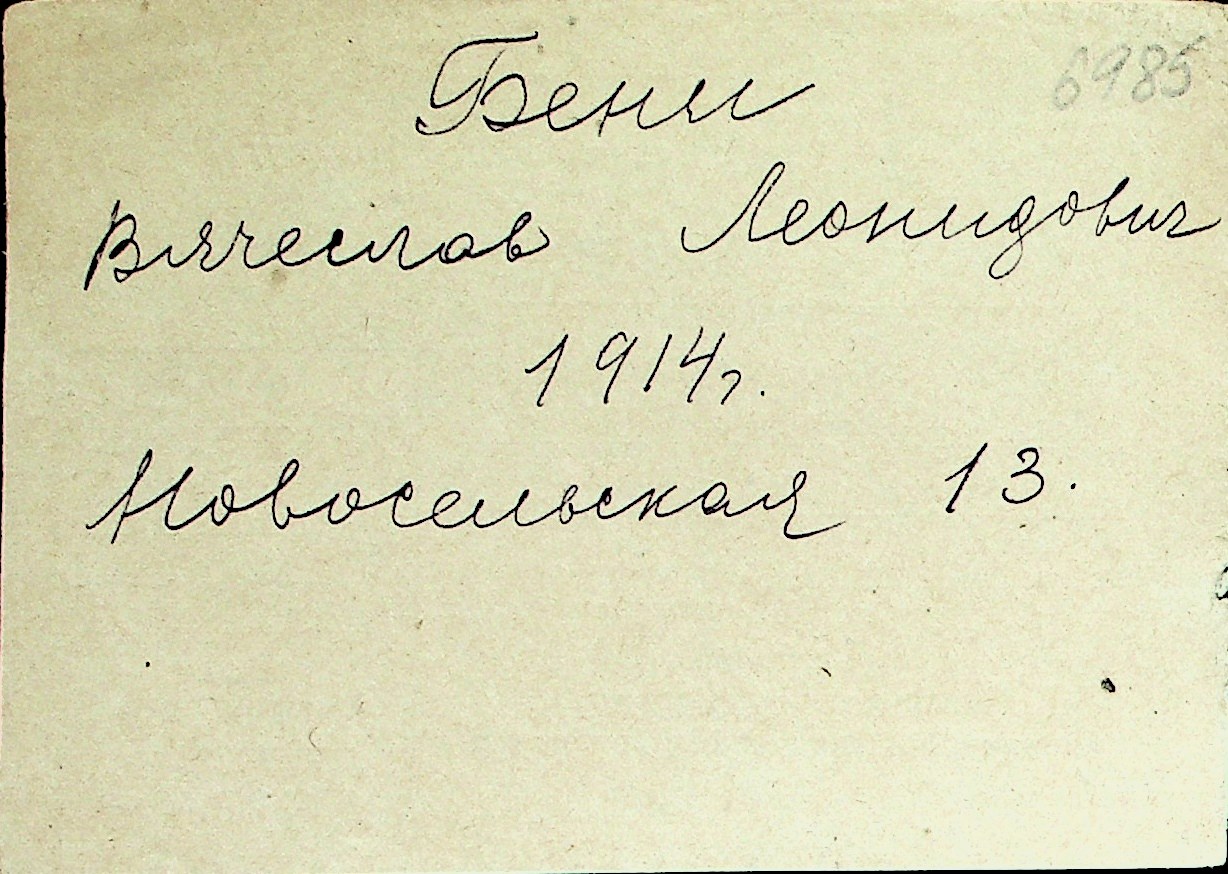 6985
Бенм
Вячеслав Леонидович
1914г.
Новосельская 13.